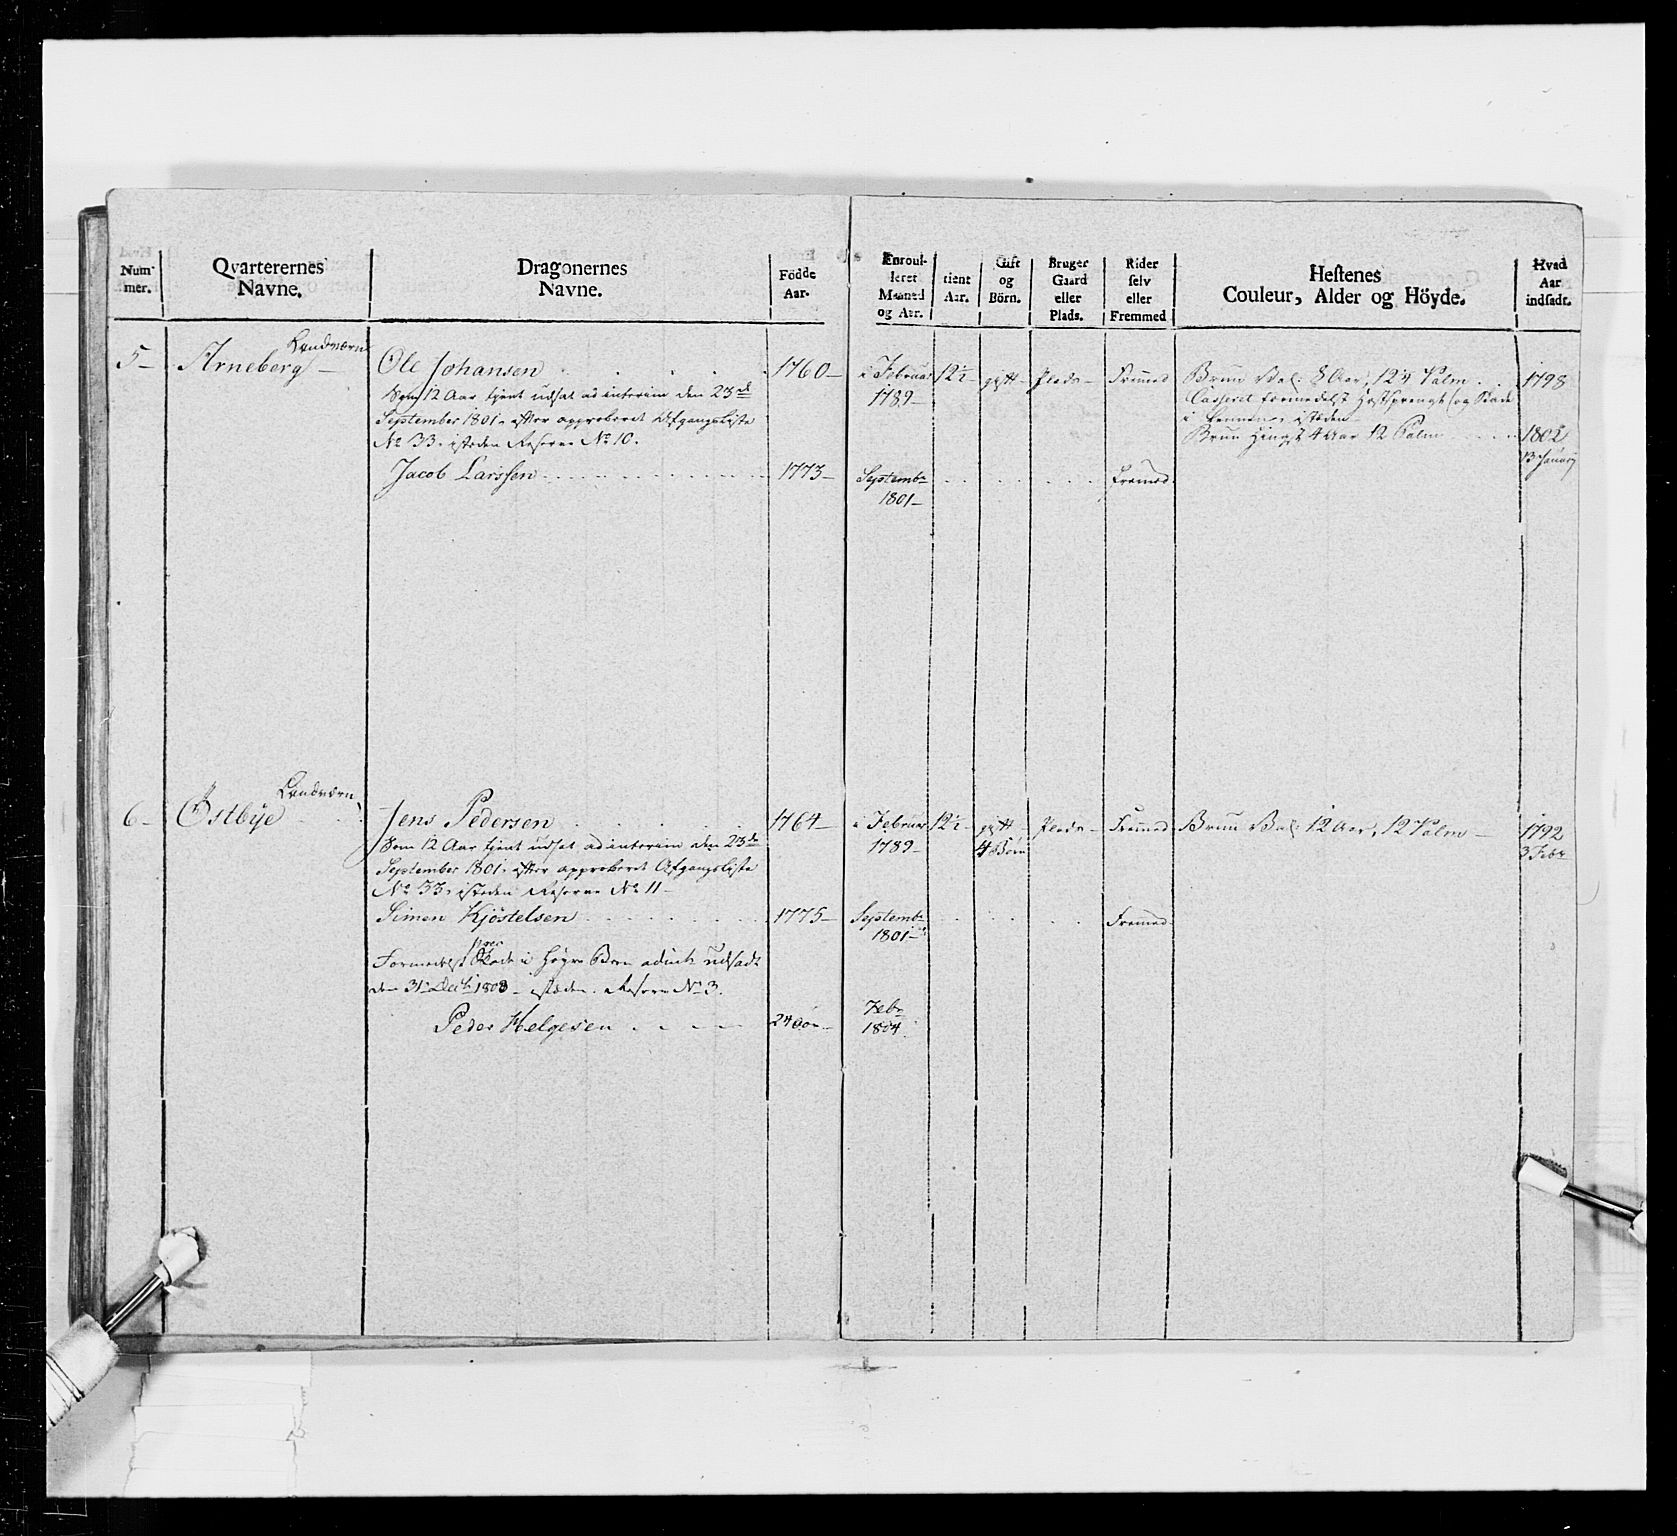 Num-
mer.
Qvarterernes
Navne.
Dragonernes
Navne.
Födde
Aar.
Enroul-
leret
Maaned
og Aar.
tient
Aar.
Gift
og
Börn.
Bruger
Gaard
eller
Plads.
Rider
selv
eller
Fremmed
Hestenes
Couleur, Alder og Höyde.
Hvad
Aar
indsadt.
5 - Arneberg - Landværn
Ole Johansen 1760 - i Februar 1789 - 12½ - gift - Plads - Fremed
Som 12 Aar tient udsat ad interim den 23de
September 1801, efter approberet Afgangsliste
No 33, isteden Reserve No 10.
Brun Val: 8 Aar, 12¼ Palm 1798
Casseret formedelst Hostsprengt og Skade
i isteden
Brun Hingst 4 Aar 12 Palm 1802
13 January
Jacob Larssen 1773 - Septembr 1801 - Fremed
6 - Östbye Landværn
Jens Pedersen 1764 - i Februar 1789 - 12½ - gift - 4 Börn Plads - Fremed Brun Val: 12 Aar, 12 Palm - 1792
3 Febr
Som 12 Aar tient udsat ad interim den 23de
September 1801, efter approberet Afgangsliste
No 33, isteden Reserve No 11 -
Simen Kjöstelsen 1775 - Septembr 1801 - Fremed
Formedelst Skade i Högre Been udsadt
den 31te Decbr 1803 - isteden Reserve No 3.
Peder Helgesen 24 Aar - Febr 1804.